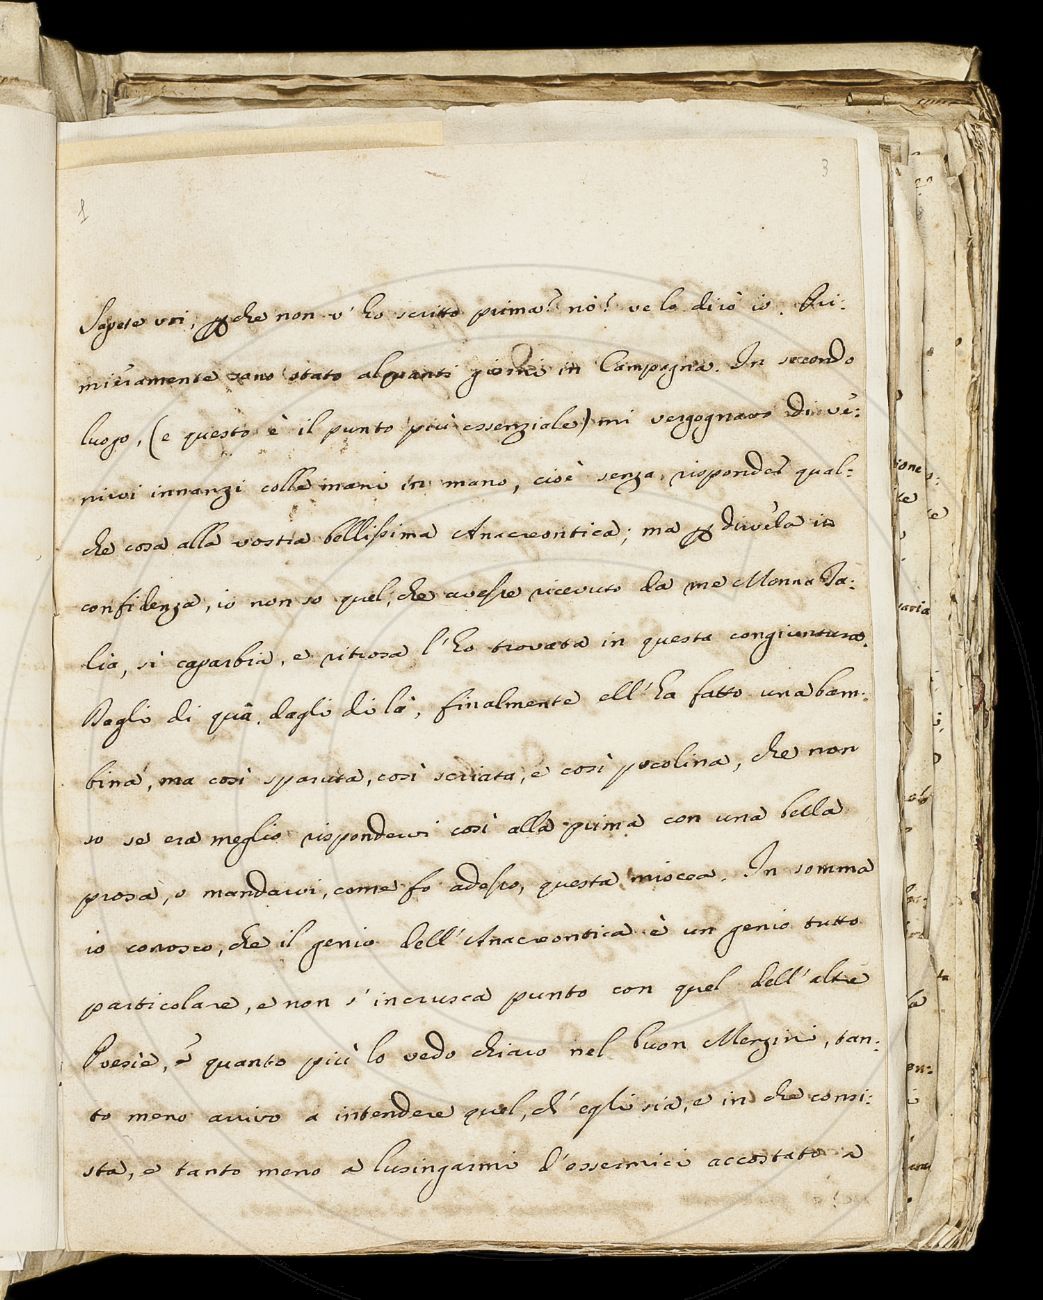 3
1
Sapete voi, ꝑche non v'ho scritto prima? nò? ve lo dirò io. Pri:
mieramente sono stato alquanti giorni in Campagna. In secondo
luogo, (e questo è il punto più essenziale) mi vergognavo di ve:
nirvi innanzi colle mani in mano, cioè senza risponder qual:
che cosa alla vostra bellissima Anacreontica; ma ꝑ dirvela in
confidenza, io non so quel, che avesse ricevuto da me Monna Ta:
lia, sì caparbia, e ritrosa l'ho trovata in questa congiuntura.
Dagli di quà, dagli di là, finalmente ell'ha fatto una bam:
bina, ma così sparuta, così scriata, e così pocolina, che non
so se era meglio rispondervi così alla prima con una bella
prosa, o mandarvi, come fo adesso, questa miocea. In somma
io conosco, che il genio dell'Anacreontica è un genio tutto
particolare, e non s'incrusca punto con quel dell'altre
Poesie, e quanto più lo vedo chiaro nel buon Menzini, tan:
to meno arrivo a intendere quel, ch'egli sia, e in che consi:
sta, e tanto meno a lusingarmi d'essermici accostato a